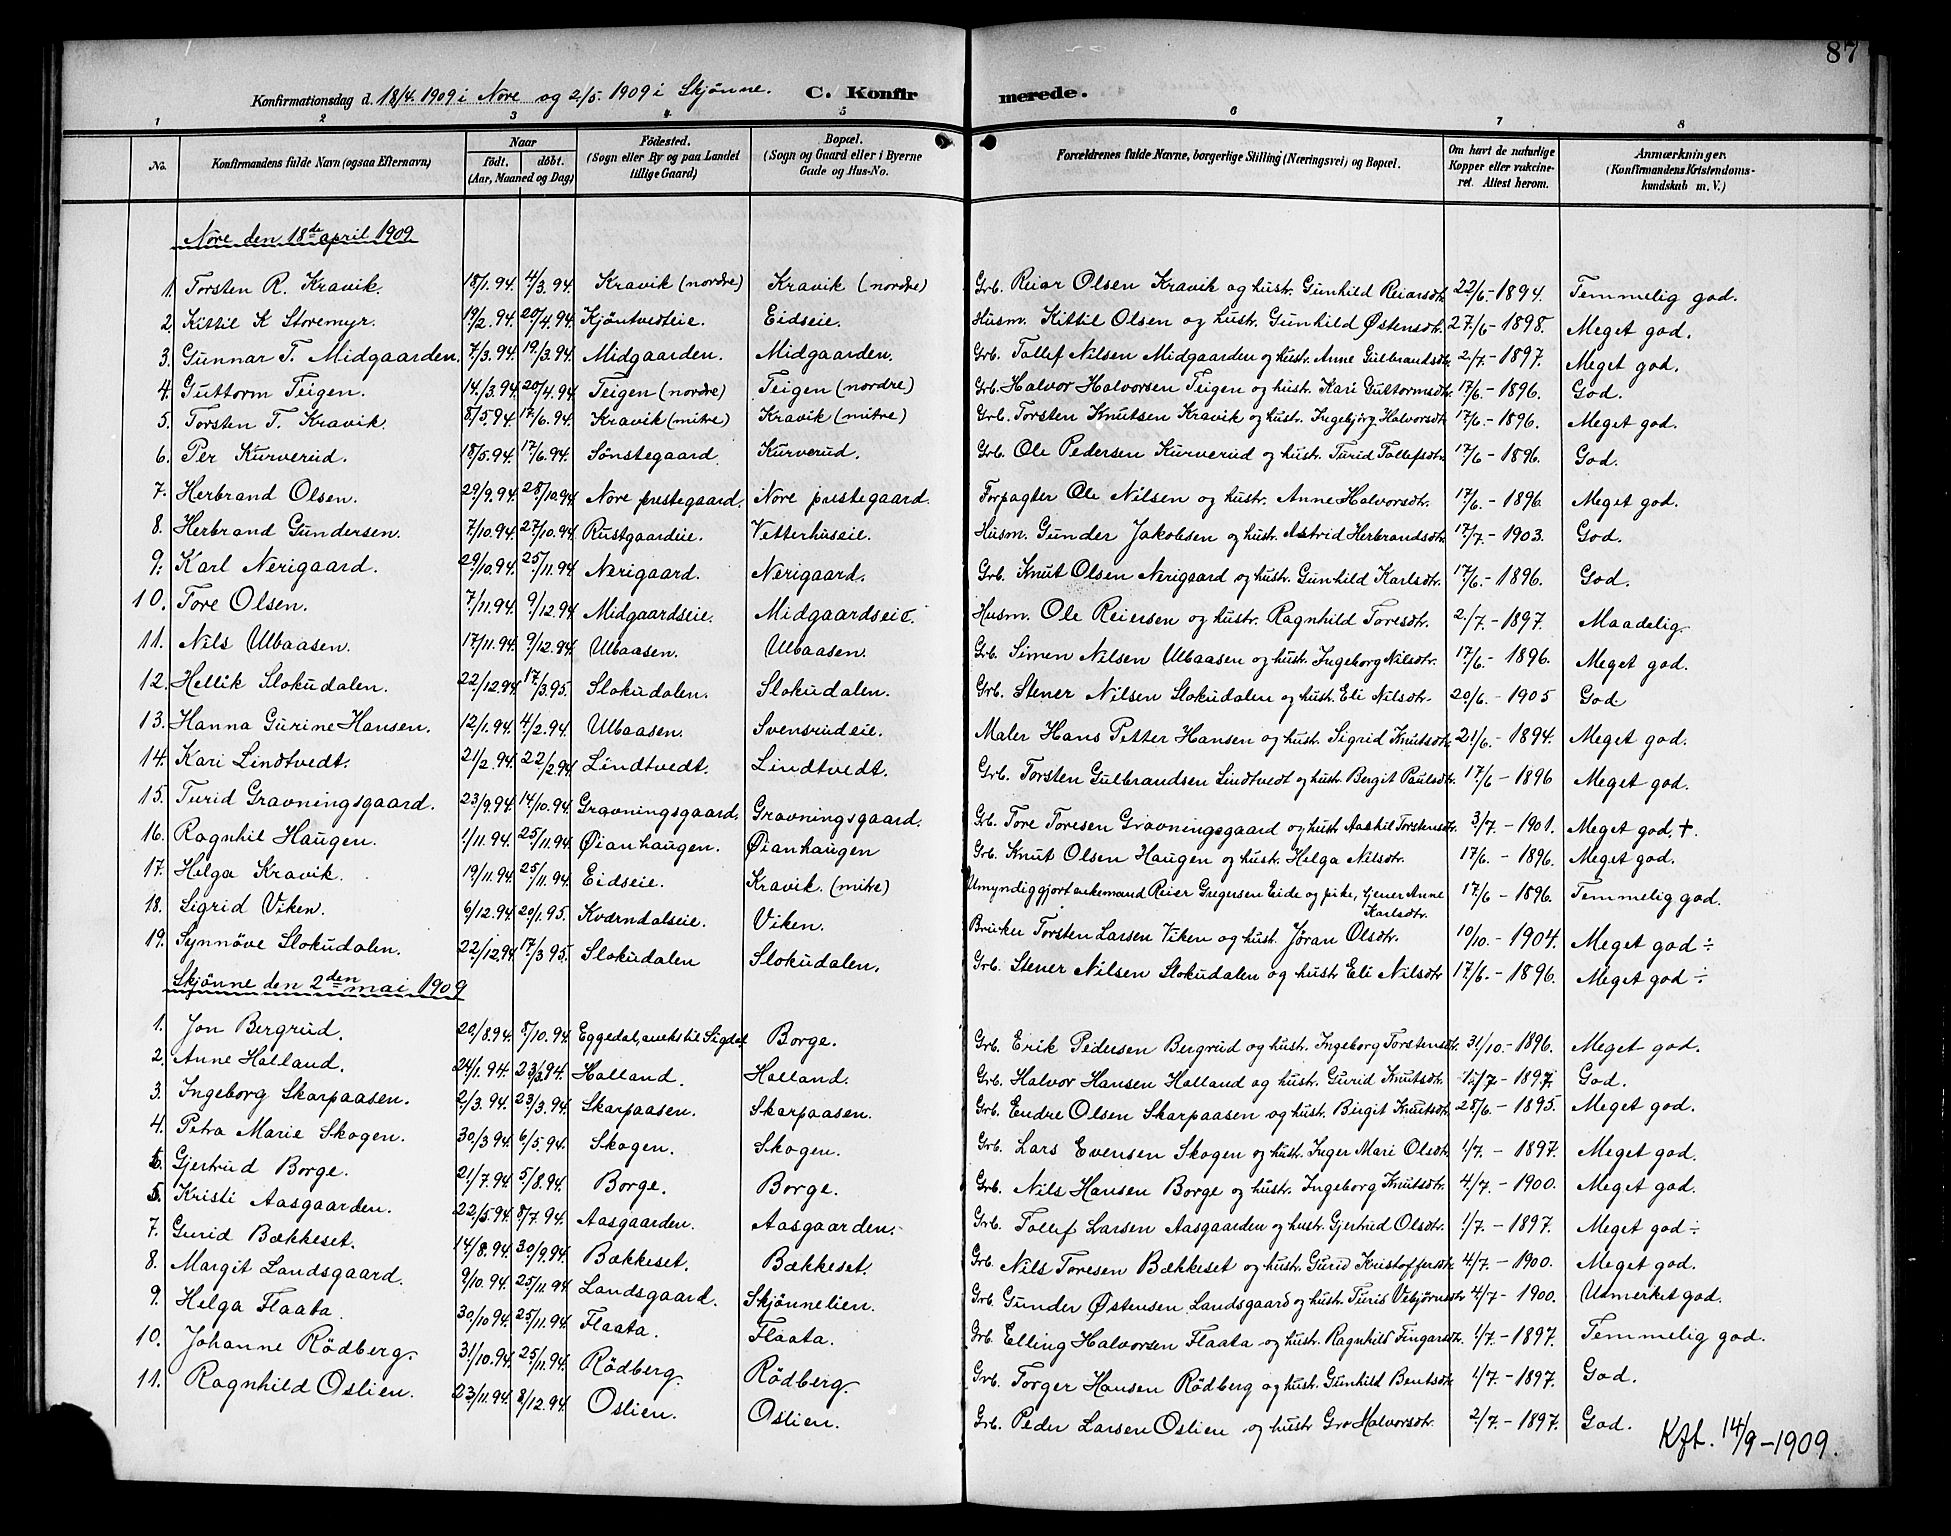 87
Konfirmationsdag d. 18/4. 1909 i Nore og 2/5. 1909 i Skjönne. C. Konfirmerede.
1 2 3 4 5 6 7 8
No. Konfirmandens fulde Navn (ogsaa Efternavn) Naar født. döbt. (Aar, Maaned og Dag) Födested. (Sogn eller By og paa Landet tillige Gaard) Bopæl. (Sogn og Gaard eller i Byerne Gade og Hus-No. Forældrenes fulde Navne, borgerlige Stilling (Næringsvei) og Bopæl. Om havt de naturlige Kopper eller vakcineret. Attest herom. Anmærkninger. (Konfirmandens Kristendomskundskab m. V.)
Nore den 18de april 1909
1. Torsten R. Kravik. 18/1.94. 4/3.94. Kravik (nordre) Kravik (nordre) Grb. Reiar Olsen Kravik og hustr. Gunhild Reiarsdtr. 22/6.-1894. Temmelig god.
2. Kittil K Storemyr. 19/2.94. 20/4.94. Kjöntvedteie. Eidseie. Husm. Kittil Olsen og hustr. Gunhild Østensdtr. 27/6-1898. Meget god.
3. Gunnar T. Midgaarden. 7/3.94. 19/3.94. Midgaarden. Midgaarden. Grb. Tollef Nilsen Midgaarden og hustr. Anne Gulbrandsdtr. 2/7.-1897. Meget god.
4. Guttorm Teigen. 14/3.94. 20/4.94. Teigen (nordre) Teigen (nordre) Grb. Halvor Halvorsen Teigen og hustr. Kari Guttormsdtr. 17/6-1896. God.
5. Torsten T. Kravik. 8/5.94 17/6.94. Kravik (mitre) Kravik (mitre) Grb. Torsten Knutsen Kravik og hustr. Ingebjörg Halvorsdtr. 17/6-1896. Meget god.
6. Per Kurverud. 18/5.94. 17/6.94. Sönstegaard. Kurverud. Grb. Ole Pedersen Kurverud og hustr. Turid Tollefsdtr. 17/6-1896. God.
7. Herbrand Olsen. 29/9.94. 28/10.94. Nore prestegaard. Nore prestegaard. Forpagter Ole Nilsen og hustr. Anne Halvorsdtr. 17/6.-1896 Meget god.
8. Herbrand Gundersen. 7/10.94. 27/10.94. Rustgaardeie. Vetterhuseie. Husm. Gunder Jakobsen og hustr. Astrid Herbrandsdtr. 17/7.-1903. God.
9. Karl Nerigaard. 29/10.94. 25/11.94 Nerigaard. Nerigaard. Grb. Knut Olsen Nerigaard og hustr. Gunhild Karlsdtr. 17/6.-1896. God.
10. Tore Olsen. 7/11.94. 9/12.94 Midgaardseie. Midgaardseie. Husm. Ole Reiersen og hustr. Ragnhild Toresdtr. 2/7.-1897. Maadelig.
11. Nils Ulbaasen. 17/11.94. 9/12.94. Ulbaasen. Ulbaasen. Grb. Simen Nilsen Ulbaasen og hustr. Ingeborg Nilsdtr. 17/6.-1896. Meget god.
12. Hellik Slokudalen. 22/12.94. 17/3.95. Slokudalen. Slokudalen. Grb. Stener Nilsen Slokudalen og hustr Eli Nilsdtr. 20/6.-1905 God
13. Hanna Gurine Hansen. 12/1.94. 4/2.94. Ulbaasen. Svensrudeie. Maler Hans Petter Hansen og hustr. Sigrid Knutsdtr. 21/6.-1894. Meget god.
14. Kari Lindtvedt. 21/2.94. 22/2.94. Lindtvedt. Lindtvedt. Grb. Torsten Gulbrandsen Lindtvedt og hustr. Bergit Paulsdtr. 17/6-1896 Meget god.
15. Turid Gravningsgaard. 23/9.94. 14/10.94. Gravningsgaard. Gravningsgaard. Grb. Tore Toresen Gravningsgaard og hustr. Aashil Torstensdtr. 3/7.-1901. Meget god. +.
16. Ragnhil Haugen. 1/11.94. 25/11.94. Øianhaugen. Øianhaugen Grb. Knut Olsen Haugen og hustr. Helga Nilsdtr. 17/6.-1896. Meget god.
17. Helga Kravik. 19/11.94. 25/11.94. Eidseie. Kravik. (mitre) Umyndiggjort enkemand Reier Gregersen Eide og pike, tjener Anne Karlsdtr. 17/6-1896. Temmelig god.
18. Sigrid Viken. 6/12.94. 20/1.95. Kværndalseie. Viken. Bruker Torsten Larsen Viken og hust. Jöran Olsdtr. 10/10.-1904. Meget god ÷
19. Synnöve Slokudalen. 22/12.94 17/3 95. Slokudalen Slokudalen. Grb. Stener Nilsen Slokudalen og hustr Eli Nilsdtr 17/6.-1896. Meget god ÷
Skjönne den 2den mai 1909
1. Jon Bergrud. 20/8.94. 8/10.94. Eggedal, aneks til Sigdal Borge. Grb. Erik Pedersen Bergrud og hustr. Ingeborg Torstensdtr. 31/10.-1896. Meget god.
2. Anne Holland. 24/1.94. 23/3.94. Holland. Holland. Grb. Halvor Hansen Holland og hustr. Gurid Knutsdtr. 15/7-1897. God.
3. Ingeborg Skarpaasen. 2/3.94. 23/3.94. Skarpaasen. Skarpaasen. Grb. Endre Olsen Skarpaasen og hustr. Birgit Knutsdtr. 28/6.-1895. Meget god.
4. Petra Marie Skogen. 30/3 94. 6/5.94. Skogen. Skogen. Grb. Lars Evensen Skogen og hustr. Inger Mari Olsdtr. 1/7.-1897. Meget god.
Gjertrud Borge. 21/7.94. 5/8.94. Borge. Borge. Grb. Nils Hansen Borge og hustr. Ingeborg Knutsdtr. 4/7.-1900. Meget god.
Kristi Aasgaarden. 22/5.94. 8/7.94. Aasgaarden. Aasgaarden. Grb. Tollef Larsen Aasgaarden og hustr. Gjertrud Olsdtr. 1/7.-1897. Meget god ÷
7. Gurid Bækkeset. 14/8.94. 30/9.94. Bækkeset. Bækkeset. Grb. Nils Toresen Bækkeset og hustr. Gurid Kristoffersdtr 4/7.-1900. Meget god.
8. Margit Landsgaard. 9/10.94. 25/11.94 Landsgaard. Skjönnelien. Grb. Gunder Østensen Landsgaard og hustr. Turid Vebjörnsdtr 4/7-1900. Utmerket god.
9. Helga Flaata. 30/10.94. 25/11.94. Flaata. Flaata. Grb. Elling Halvorsen Flaata og hustr. Ragnhild Fingarsdtr. 1/7.-1897. Temmelig god.
10. Johanne Rödberg. 31/10.94. 25/11.94. Rödberg. Rödberg. Grb. Torger Hansen Rödberg og hustr. Gunhild Bentsdtr. 1/7.-1897. God.
11. Ragnhild Oslien. 23/11.94. 8/12.94. Oslien. Oslien. Grb. Peder Larsen Oslien og hustr Gro Halvorsdtr. 2/7.-1897. God.
Kft. 14/9-1909.